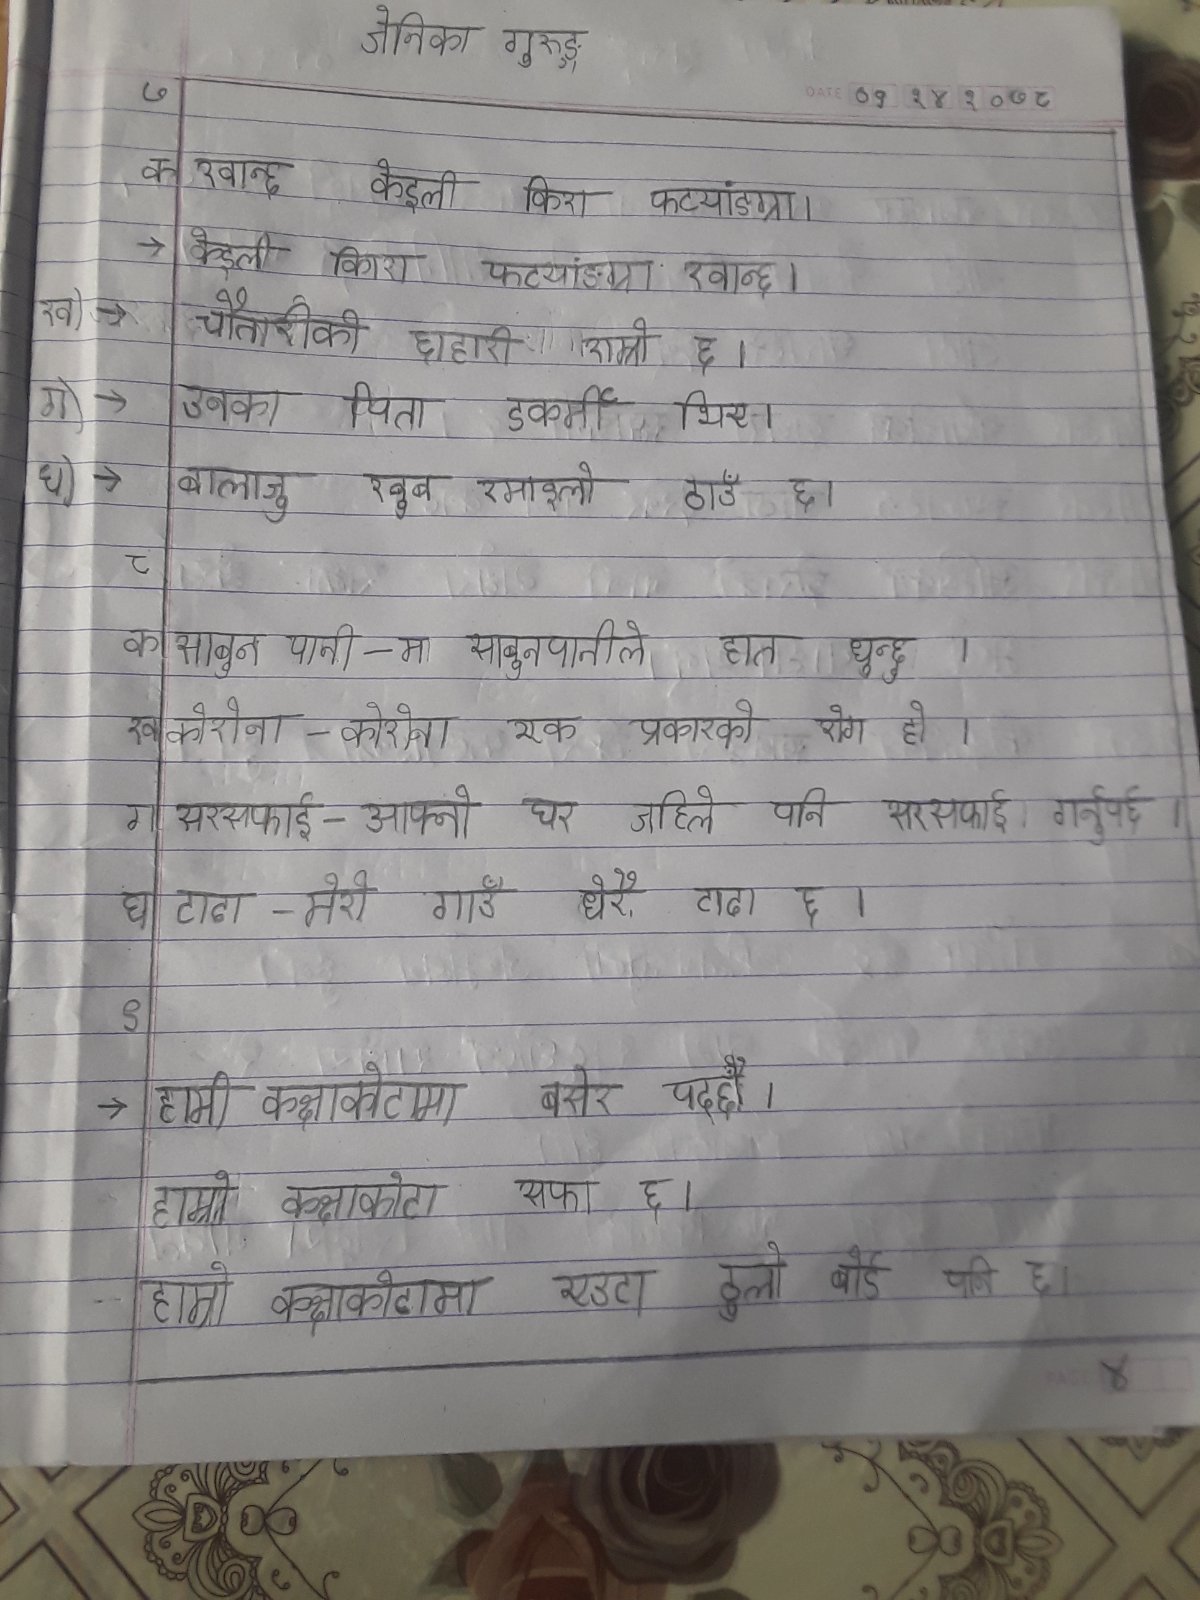 जेनिका गुरुङ्ग
७
DATE ०१ २४ २०७८
क खान्छ केइली किरा फट्याङग्रा।
→ केइली किरा फट्यांङग्रा खान्छ।
ख) → चौतारीको छाहारी राम्रो छ ।
ग) → उनका पिता डकर्मी थिए।
घ) → बालाजु खुब रमाइलो ठाउँ छ।
८
क साबुन पानी – म साबुनपानीले हात धुन्छु ।
ख कोरोना – कोरोना एक प्रकारको रोग हो ।
ग सरसफाई – आफ्नो घर जहिले पनि सरसफाई गर्नुपर्छ ।
घ टाढा – मेरो गाउँ धेरै टाढा छ ।
९
→ हामी कक्षाकोठामा बसेर पढ्छौं।
हाम्रो कक्षाकोठा सफा छ।
हाम्रो कक्षाकोठामा एउटा ठुलो बोर्ड पनि छ।
PAGE ४